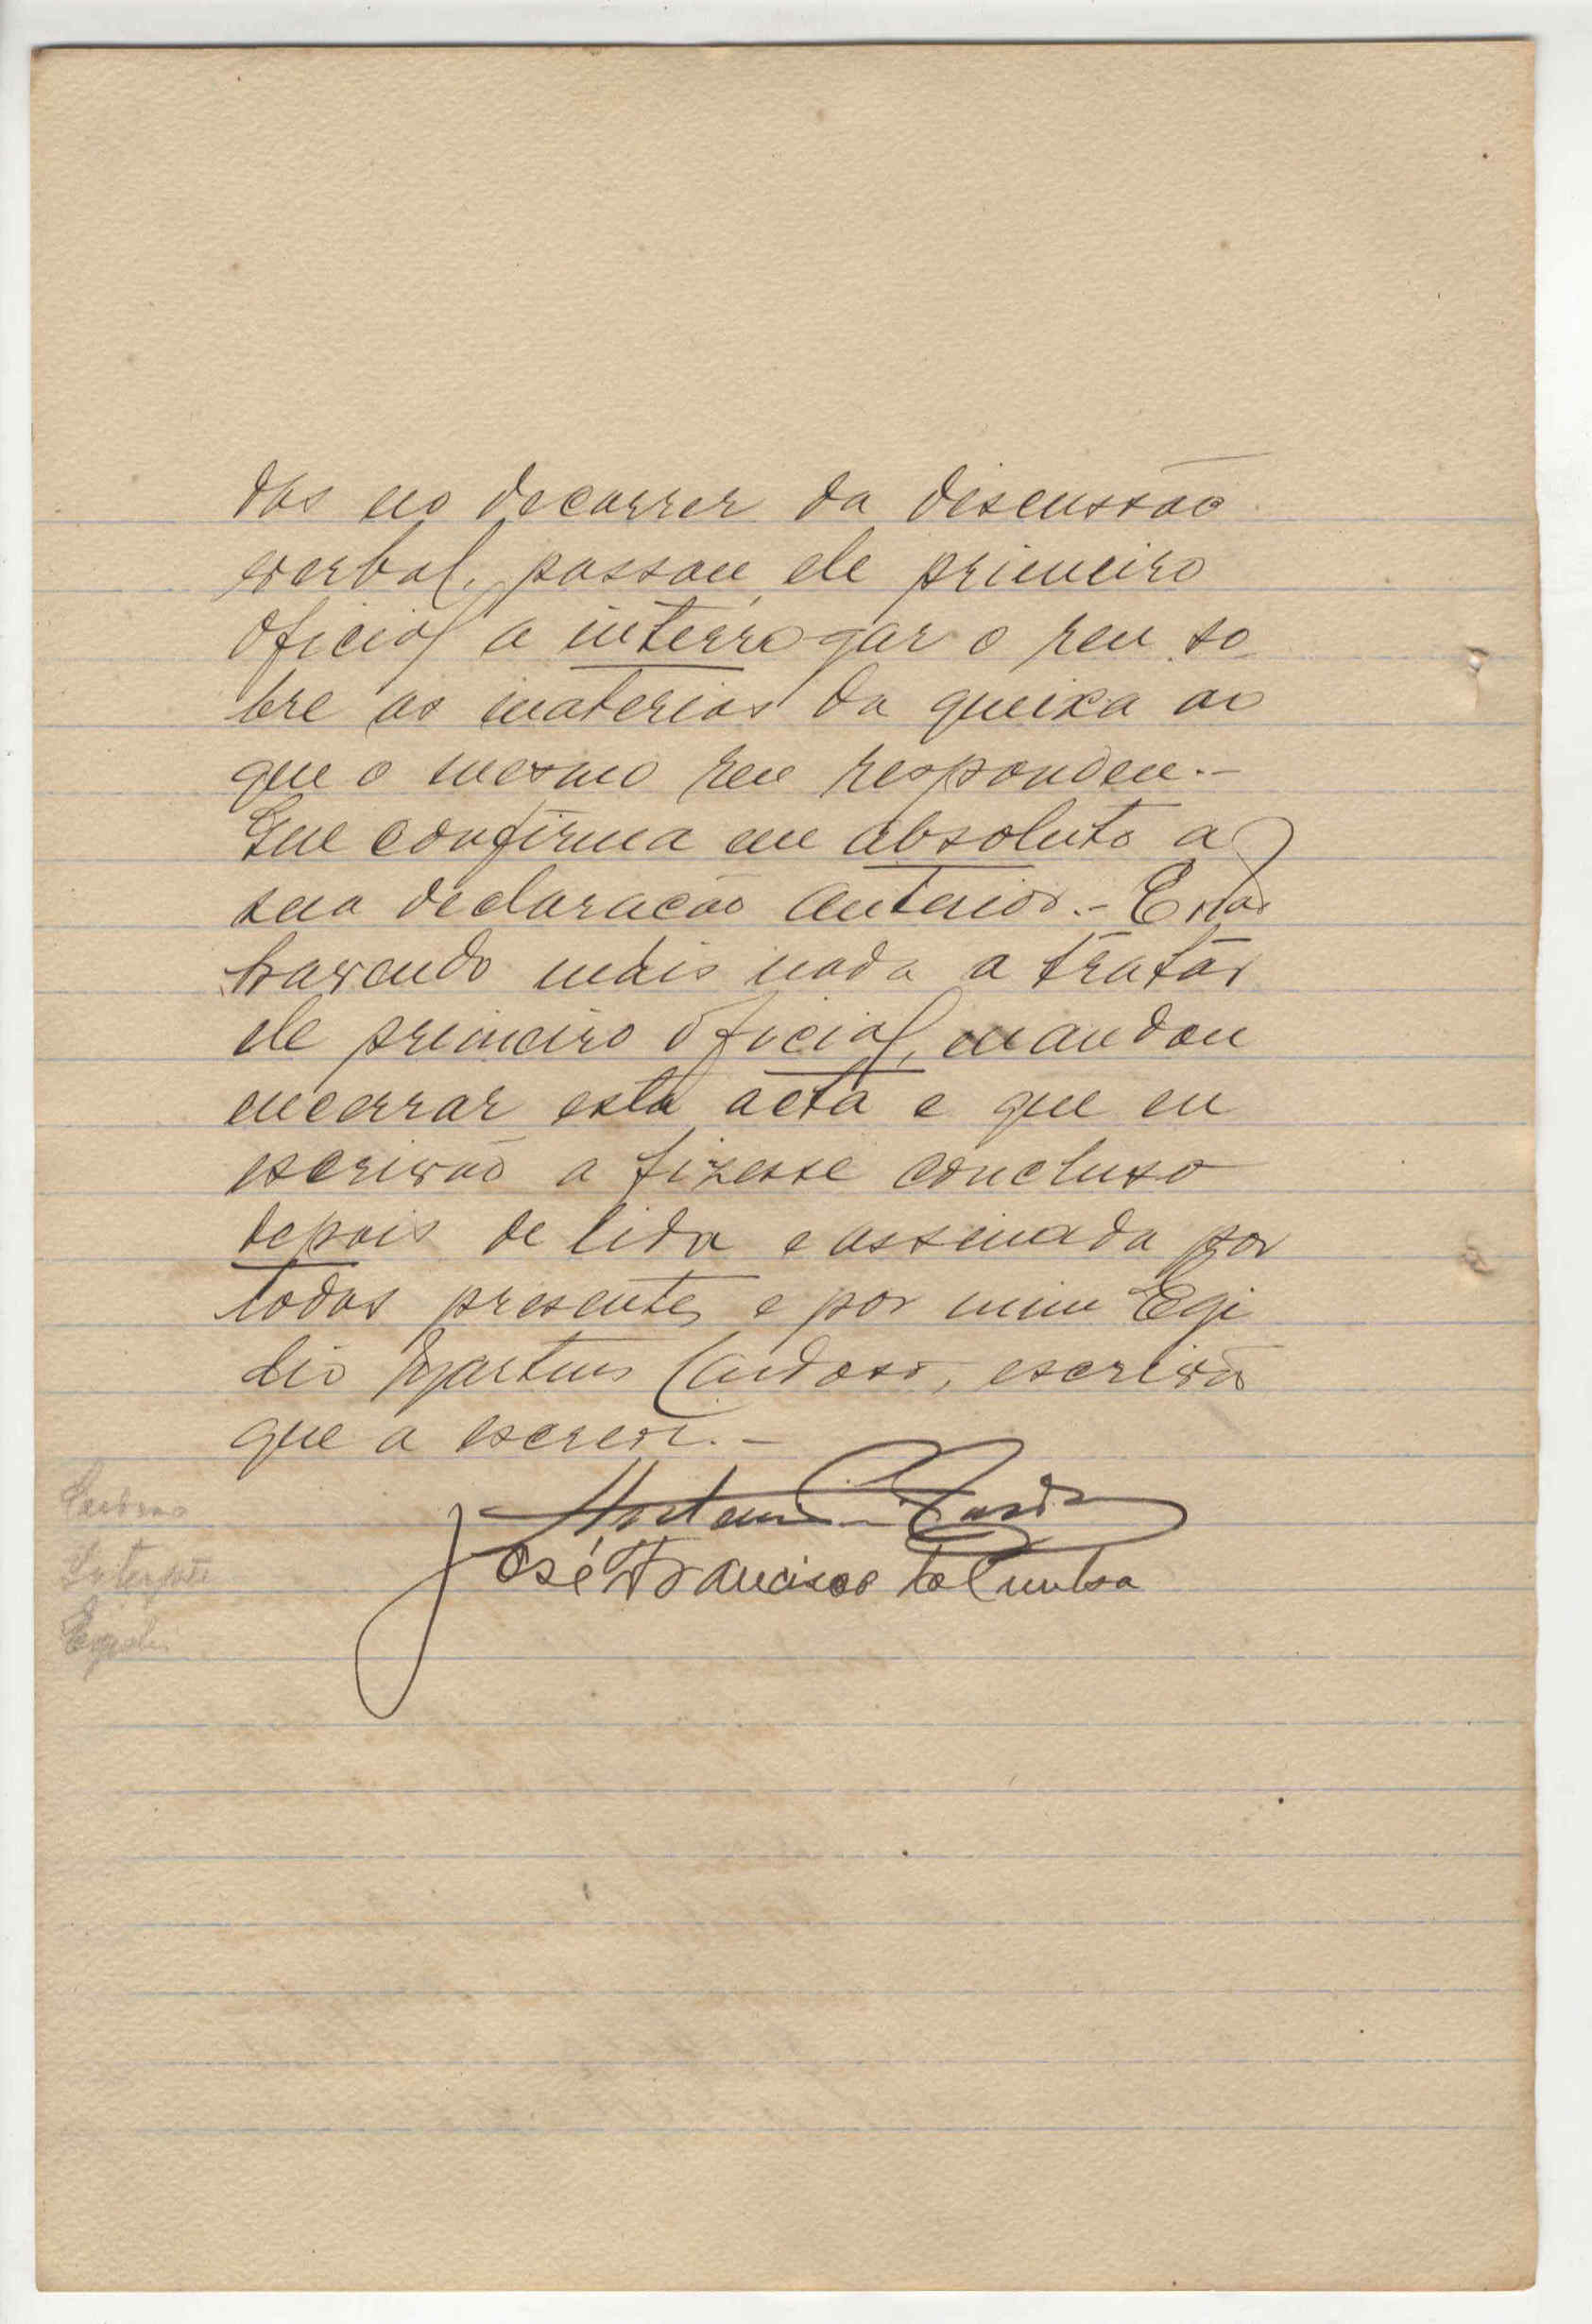 dos no decorrer da discussão
verbal, passou ele primeiro
oficial a interrogar o reu so
bre as materias da queixa ao
que o mesmo reu respondeu.-
Que confirma em absoluto a
sua declaração anterior.- E não
havendo mais nada a tratar
ele primeiro oficial, mandou
encerrar esta acta e que eu
escrivão a fizesse concluso
depois de lida e assinada por
todos presentes e por mim Egi
dio Martins Cardoso, escrivão
que a escrevi.-
José Francisco da Cunha